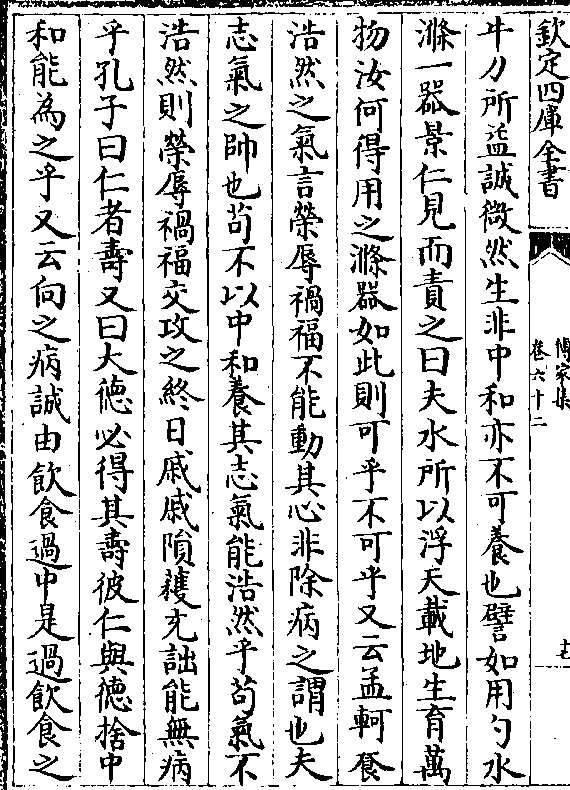 欽定四庫全書
傳家集
卷六十二
十七
牛刀所益誠微然生非中和亦不可養也譬如用勺水
滌一器景仁見而責之曰夫水所以浮天載地生育萬
物汝何得用之滌器如此則可乎不可乎又云孟軻養
浩然之氣言榮辱禍福不能動其心非除病之謂也夫
志氣之帥也苟不以中和養其志氣能浩然乎苟氣不
浩然則榮辱禍福交攻之終日戚戚隕穫充詘能無病
乎孔子曰仁者壽又曰大徳必得其壽彼仁與徳捨中
和能為之乎又云向之病誠由飲食過中是過飲食之